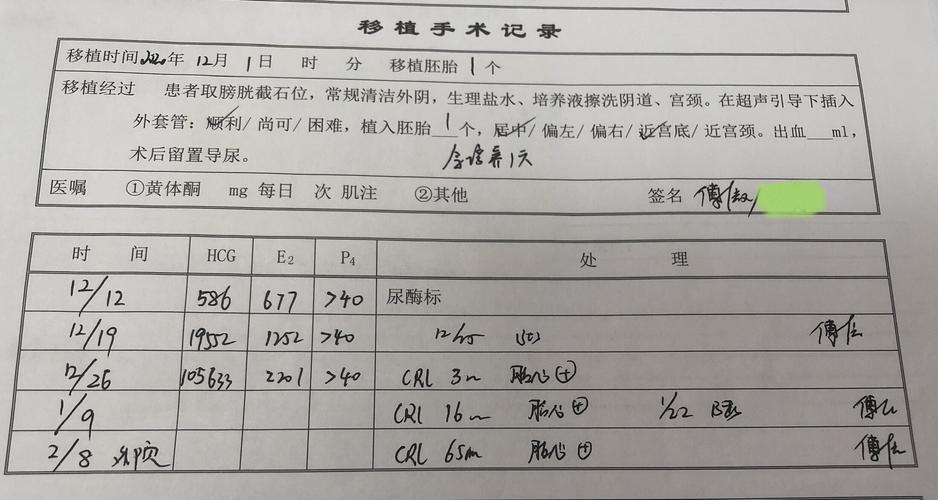 移植手术记录
移植时间2020年 12月 1日 时 分 移植胚胎 1 个
移植经过 患者取膀胱截石位，常规清洁外阴，生理盐水、培养液擦洗阴道、宫颈。在超声引导下插入
外套管：顺利/尚可/困难，植入胚胎 1 个，居中/偏左/偏右/近宫底/近宫颈。出血___ml，
术后留置导尿。 培养1天
医嘱 ①黄体酮 mg 每日 次 肌注 ②其他 签名 傅
时 间 HCG E₂ P₄ 处 理
12/12 586 677 >40 尿酶标
12/19 19552 1252 >40 12/25 傅
12/26 105633 2201 >40 CRL 3m 胎心⊕
1/9 CRL 16m 胎心⊕ 1/22 傅
2/8 CRL 65mm 胎心⊕ 傅